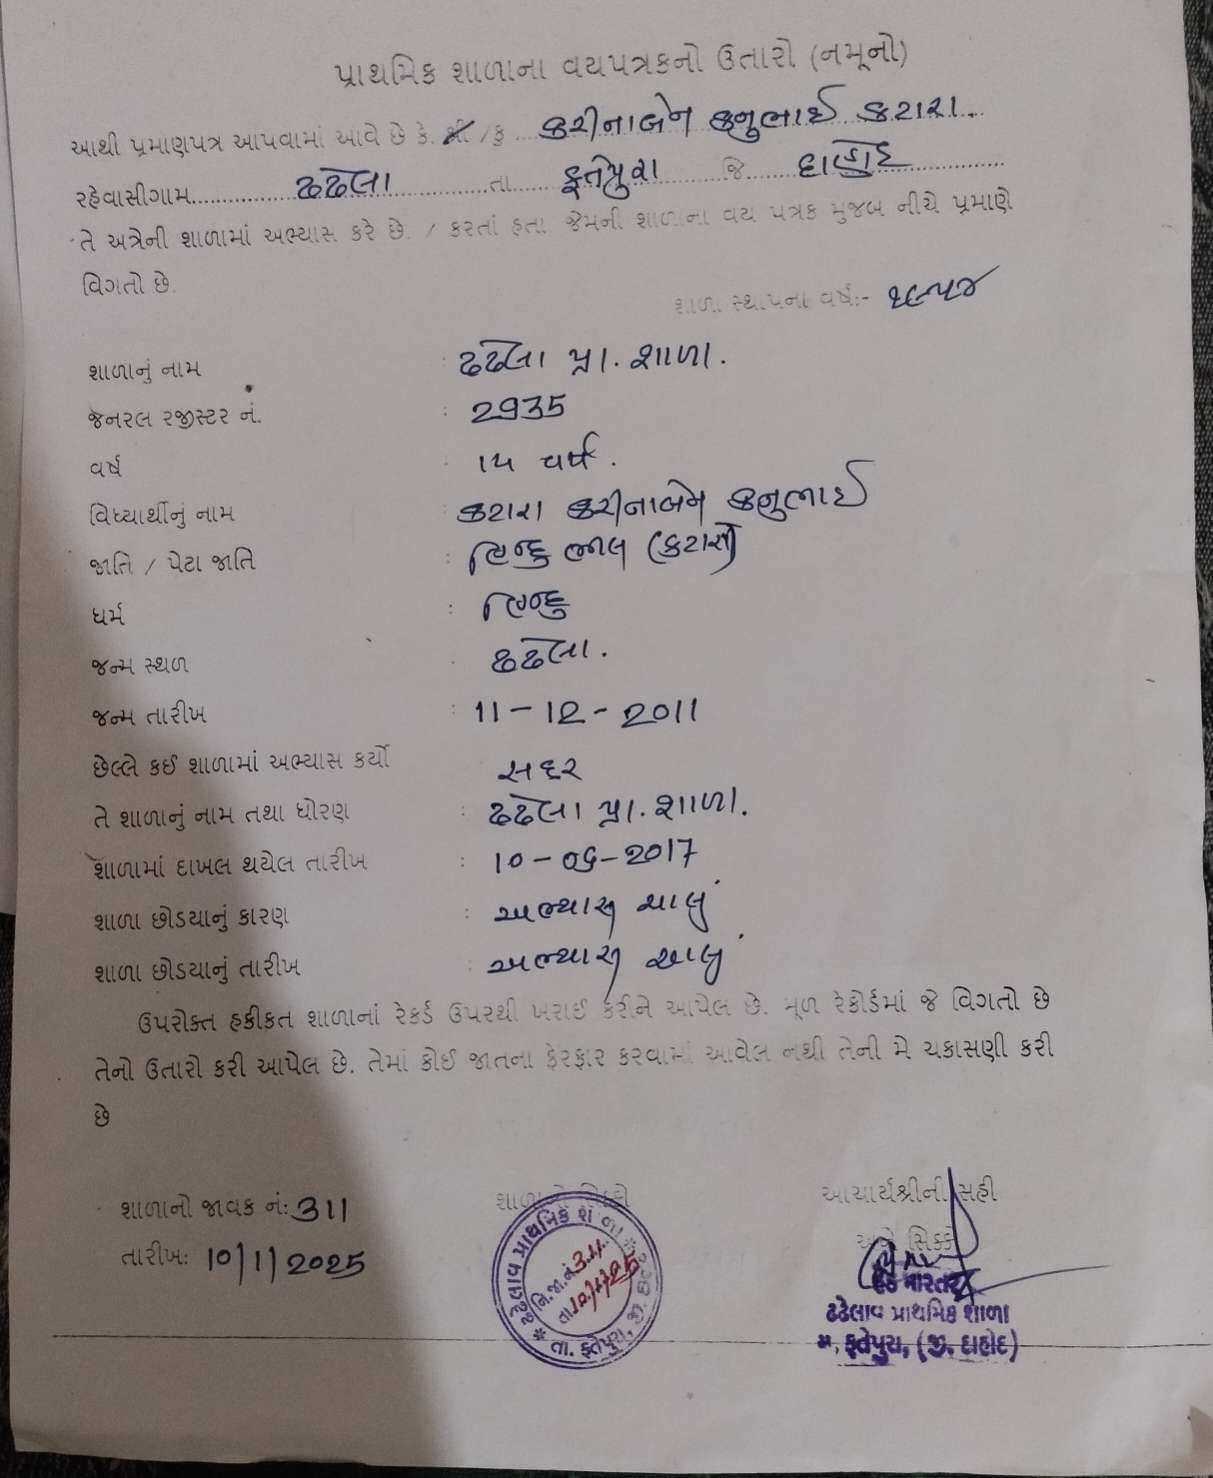 પ્રાથમિક શાળાના વયપત્રકનો ઉતારો (નમૂનો)
આથી પ્રમાણપત્ર આપવામાં આવે છે કે. શ્રી /કુ કરીનાબેન કનુભાઈ કટારા.
રહેવાસીગામ ઢઢેલા તા ફતેપુરા જિ દાહોદ
તે અત્રેની શાળામાં અભ્યાસ કરે છે. / કરતાં હતા જેમની શાળાના વય પત્રક મુજબ નીચે પ્રમાણે
વિગતો છે.
શાળા સ્થાપના વર્ષ:- ૧૯૫૪
શાળાનું નામ : ઢઢેલા પ્રા. શાળા.
જનરલ રજીસ્ટર નં. : 2935
વર્ષ : ૧૫ વર્ષ.
વિધ્યાર્થીનું નામ : કટારા કરીનાબેન કનુભાઈ
જાતિ / પેટા જાતિ : હિન્દુ ભીલ (કટારા)
ધર્મ : હિન્દુ
જન્મ સ્થળ : ઢઢેલા.
જન્મ તારીખ : 11-12-2011
છેલ્લે કઈ શાળામાં અભ્યાસ કર્યો સદર
તે શાળાનું નામ તથા ધોરણ : ઢઢેલા પ્રા. શાળા.
શાળામાં દાખલ થયેલ તારીખ : 10-06-2017
શાળા છોડયાનું કારણ : અભ્યાસ ચાલું
શાળા છોડયાનું તારીખ : અભ્યાસ ચાલું
ઉપરોક્ત હકીકત શાળાનાં રેકર્ડ ઉપરથી ખરાઈ કરીને આપેલ છે. મૂળ રેકોર્ડમાં જે વિગતો છે
તેનો ઉતારો કરી આપેલ છે. તેમાં કોઈ જાતના ફેરફાર કરવામાં આવેલ નથી તેની મે ચકાસણી કરી
છે
શાળાનો જાવક નં: 311
તારીખ: 10/1/2025
શાળાનો સિક્કો
ઢઢેલાવ પ્રાથમિક શાળા
નિ.જા.નં.311
તા.10/1/25
તા. ફતેપુરા, જી. દાહોદ
આચાર્યશ્રીની સહી
અને સિક્કો
હેડ માસ્તર
ઢઢેલાવ પ્રાથમિક શાળા
ફતેપુરા, (જી. દાહોદ)